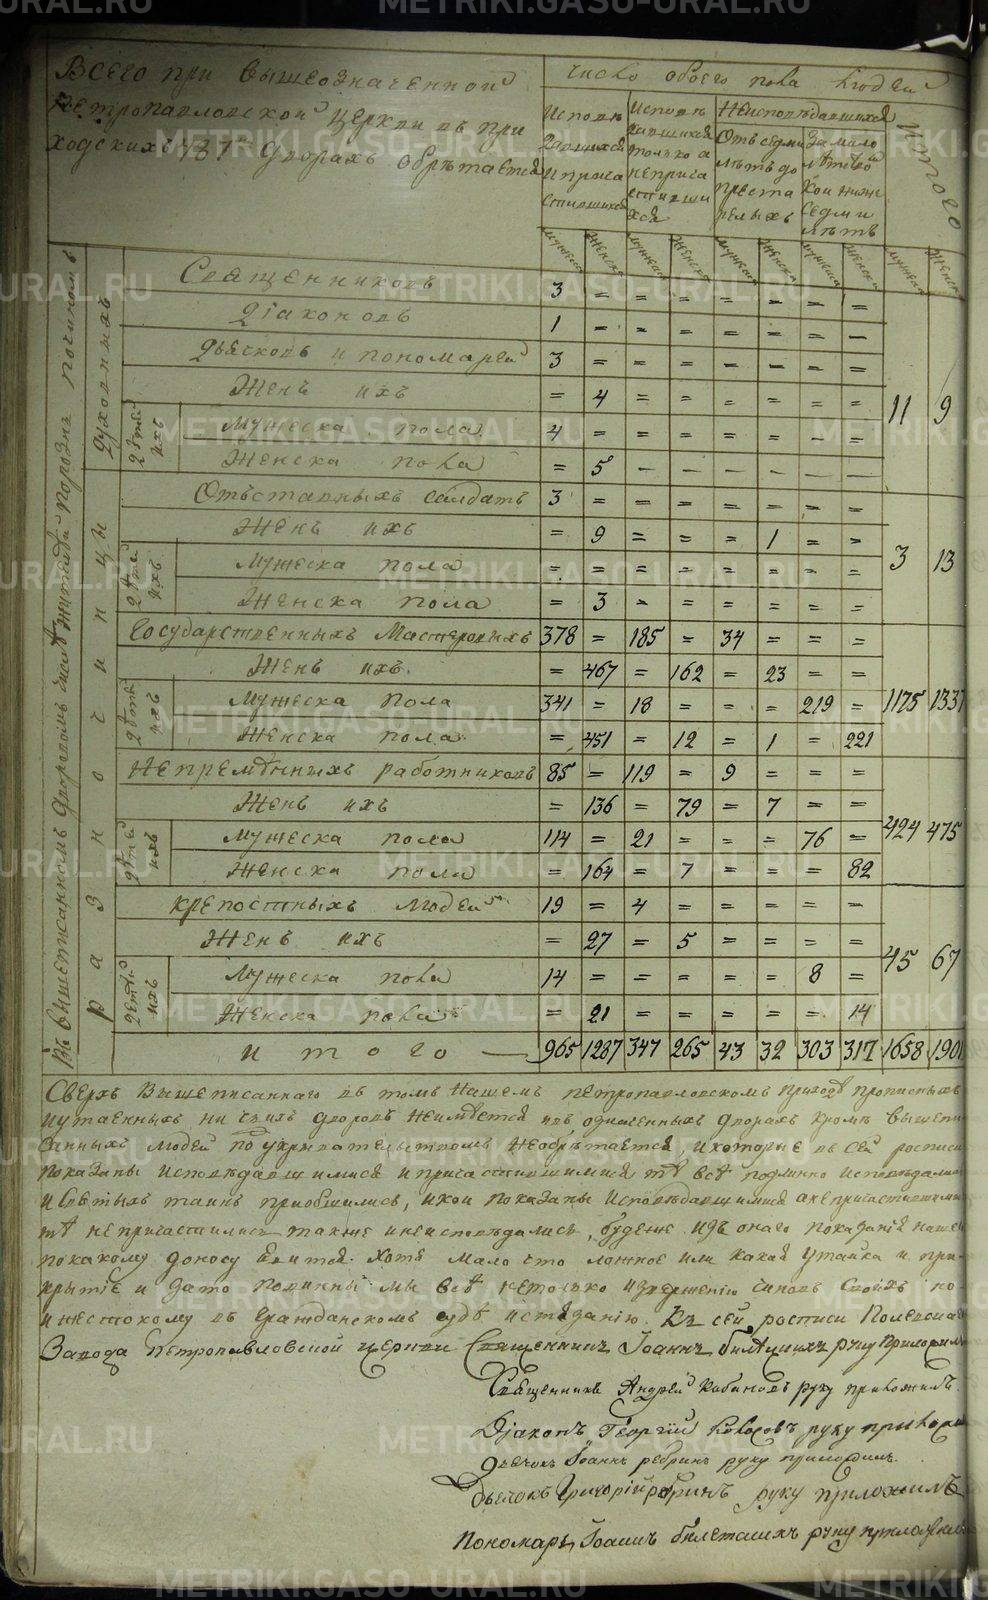 METRIKI.GASO-URAL.RU
Всего при вышеозначенной
Петропавловской церкви въ при
ходскихъ 737 дворахъ обрѣтается
число обоего пола людей
Исповѣ
давшихся
и прича
стившихся
Исповѣ
давшихся
только а
непричa
стивши
хся
Неисповѣдавшихся
Отъ седми
лѣтъ до
преста
релыхъ
За мало
лѣтст
кои ниже
седми
лѣтъ
итого
мужеска женска мужеска женска мужеска женска мужеска женска мужеска женска
духовныхъ
Священниковъ 3 = = = = = = =
Діаконовъ 1 = = = = = = =
Дьячковъ и пономарей 3 = = = = = = =
Женъ ихъ = 4 = = = = = = 11 9
дѣтей ихъ
Мужеска пола 4 = = = = = = =
Женска пола = 5 — — — — — —
разночинцы
Отъставныхъ салдатъ 3 = = = = = = =
Женъ ихъ = 9 = = = 1 = = 3 13
дѣтей ихъ
Мужеска пола = = = = = = = =
Женска пола = 3 = = = = = =
Государственныхъ Мастеровыхъ 378 = 185 = 34 = = =
Женъ ихъ = 467 = 162 = 23 = =
дѣтей ихъ
Мужеска Пола 341 = 18 = = = 219 = 1175 1337
Женска пола = 451 = 12 = 1 = 221
Непремѣнныхъ работниковъ 85 = 119 = 9 = = =
Женъ ихъ = 136 = 79 = 7 = = 424 475
дѣтей ихъ
Мужеска пола 114 = 21 = = = 76 =
Женска пола = 164 = 7 = = = 82
крепостныхъ людей 19 = 4 = = = = =
Женъ ихъ = 27 = 5 = = = = 45 67
детей ихъ
Мужеска пола 14 = = = = = 8 =
Женска пола = 21 = = = = = 14
итого — 965 1287 347 265 43 32 303 317 1658 190
Сверхъ Вышеписаннаго въ томъ Нашемъ петропавловскомъ приходѣ прописныхъ
и утаенныхъ ни чьихъ дворовъ неимѣется и въ означенныхъ дворахъ кромѣ вышепи
санныхъ людей по укрывательствомъ необрѣтается, и которые въ сей росписи
показаны исповѣдавшимися и причастившимися, тѣ всѣ подлинно исповѣдались
и святыхъ таинъ приобщились, и кои показаны исповѣдавшимися а непричастившимися
тѣ непричастились также и неисповѣдались, буде же изъ онаго показанія нашего
по какому доносу явится хотя мало что ложное или какая утайка и при
крытіе и за то повинны мы всѣ нетолько извержению чиновъ своихъ но
и жестокому въ гражданскомъ судѣ истязанію. Къ сей росписи Полевска
Завода Петропавловской церкви Священникъ Іоаннъ руку приложилъ
Священникъ Андрей Кабановъ руку приложилъ.
Діаконъ Георгій руку прилож
дьячокъ Іоаннъ ребринъ руку приложилъ.
Дьячокъ Григорій ребринъ руку приложилъ
Пономарь Іоаннъ руку приложил